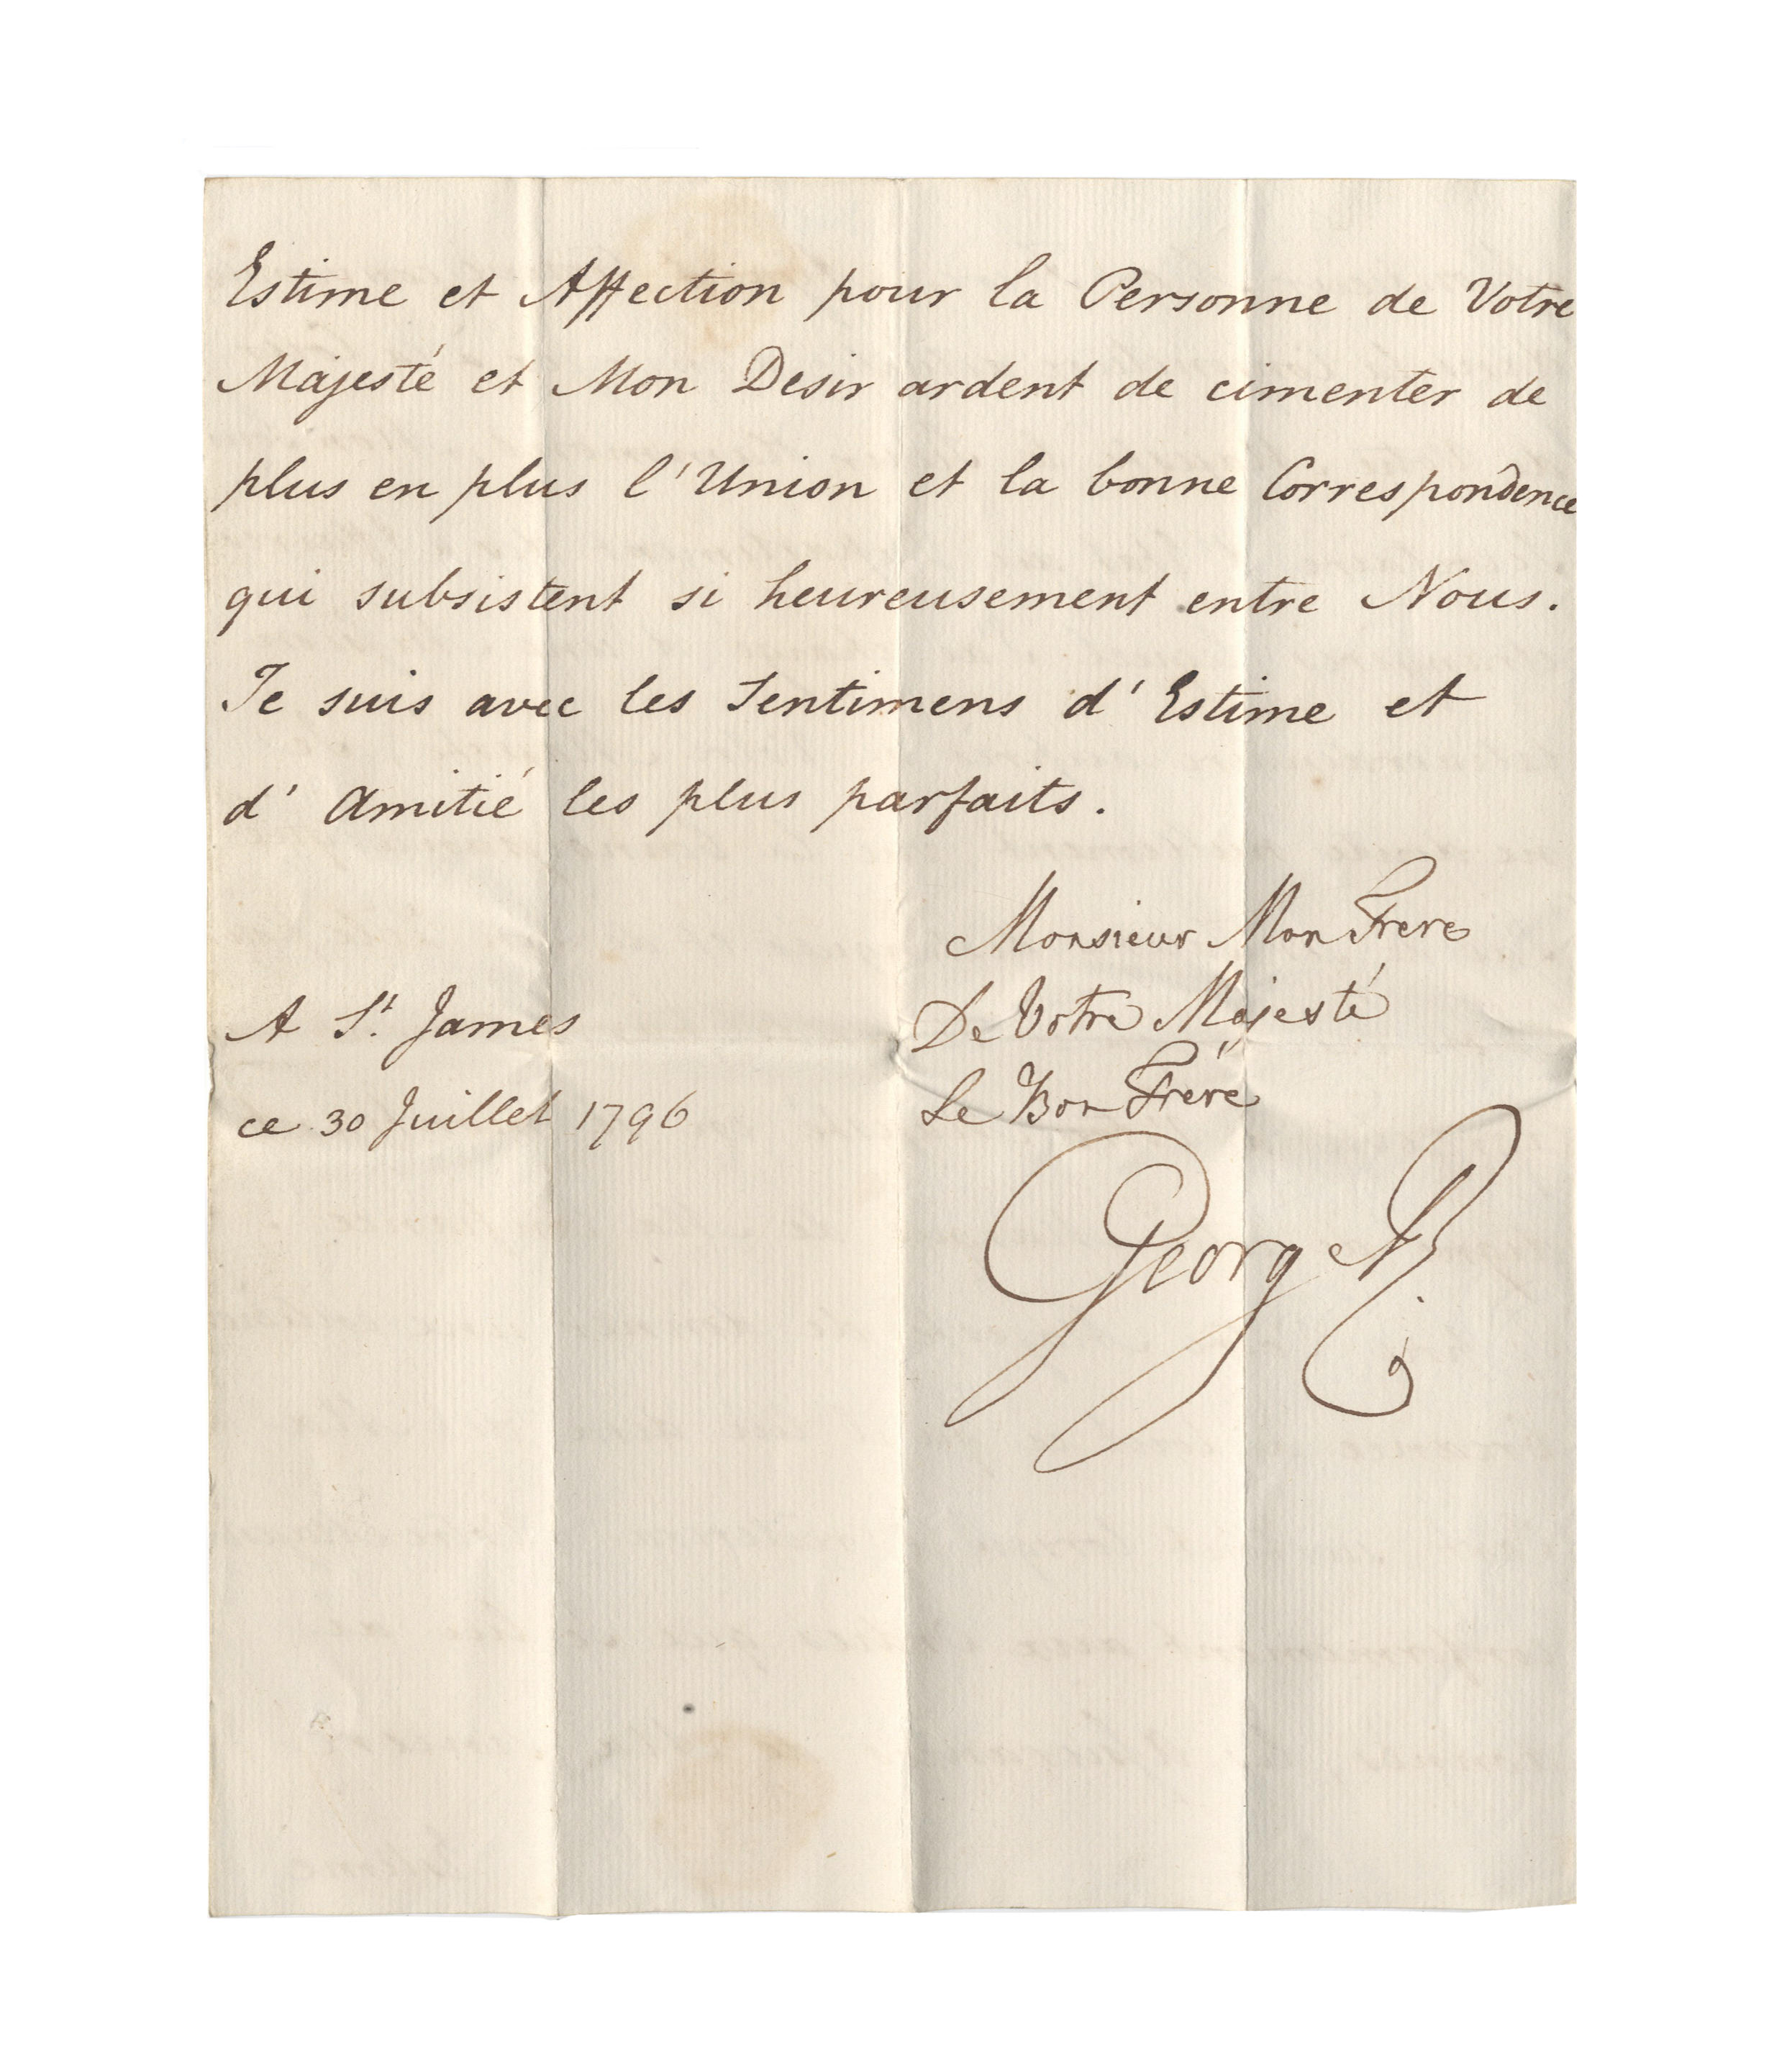 Estime et Affection pour la Personne de Votre
Majesté et Mon Desir ardent de cimenter de
plus en plus l'Union et la bonne Correspondence
qui subsistent si heureusement entre Nous.
Je suis avec les Sentimens d'Estime et
d'Amitié les plus parfaits.
Monsieur Mon Frere
De Votre Majesté
A St. James
Le Bon Frére
ce 30 Juillet 1796
George R.